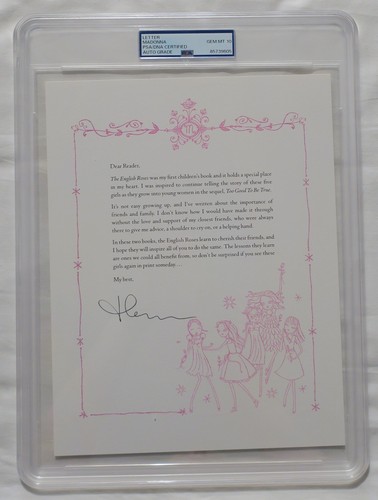 LETTER
MADONNA
PSA/DNA CERTIFIED
AUTO GRADE
GEM MT 10
M
Dear Reader,
The English Roses was my first children's book and it holds a special place
in my heart. I was inspired to continue telling the story of these five
girls as they grow into young women in the sequel, Too Good To Be True.
It's not easy growing up, and I've written about the importance of
friends and family. I don't know how I would have made it through
without the love and support of my closest friends, who were always
there to give me advice, a shoulder to cry on, or a helping hand.
In these two books, the English Roses learn to cherish their friends, and
I hope they will inspire all of you to do the same. The lessons they learn
are ones we could all benefit from, so don't be surprised if you see these
girls again in print someday...
My best,